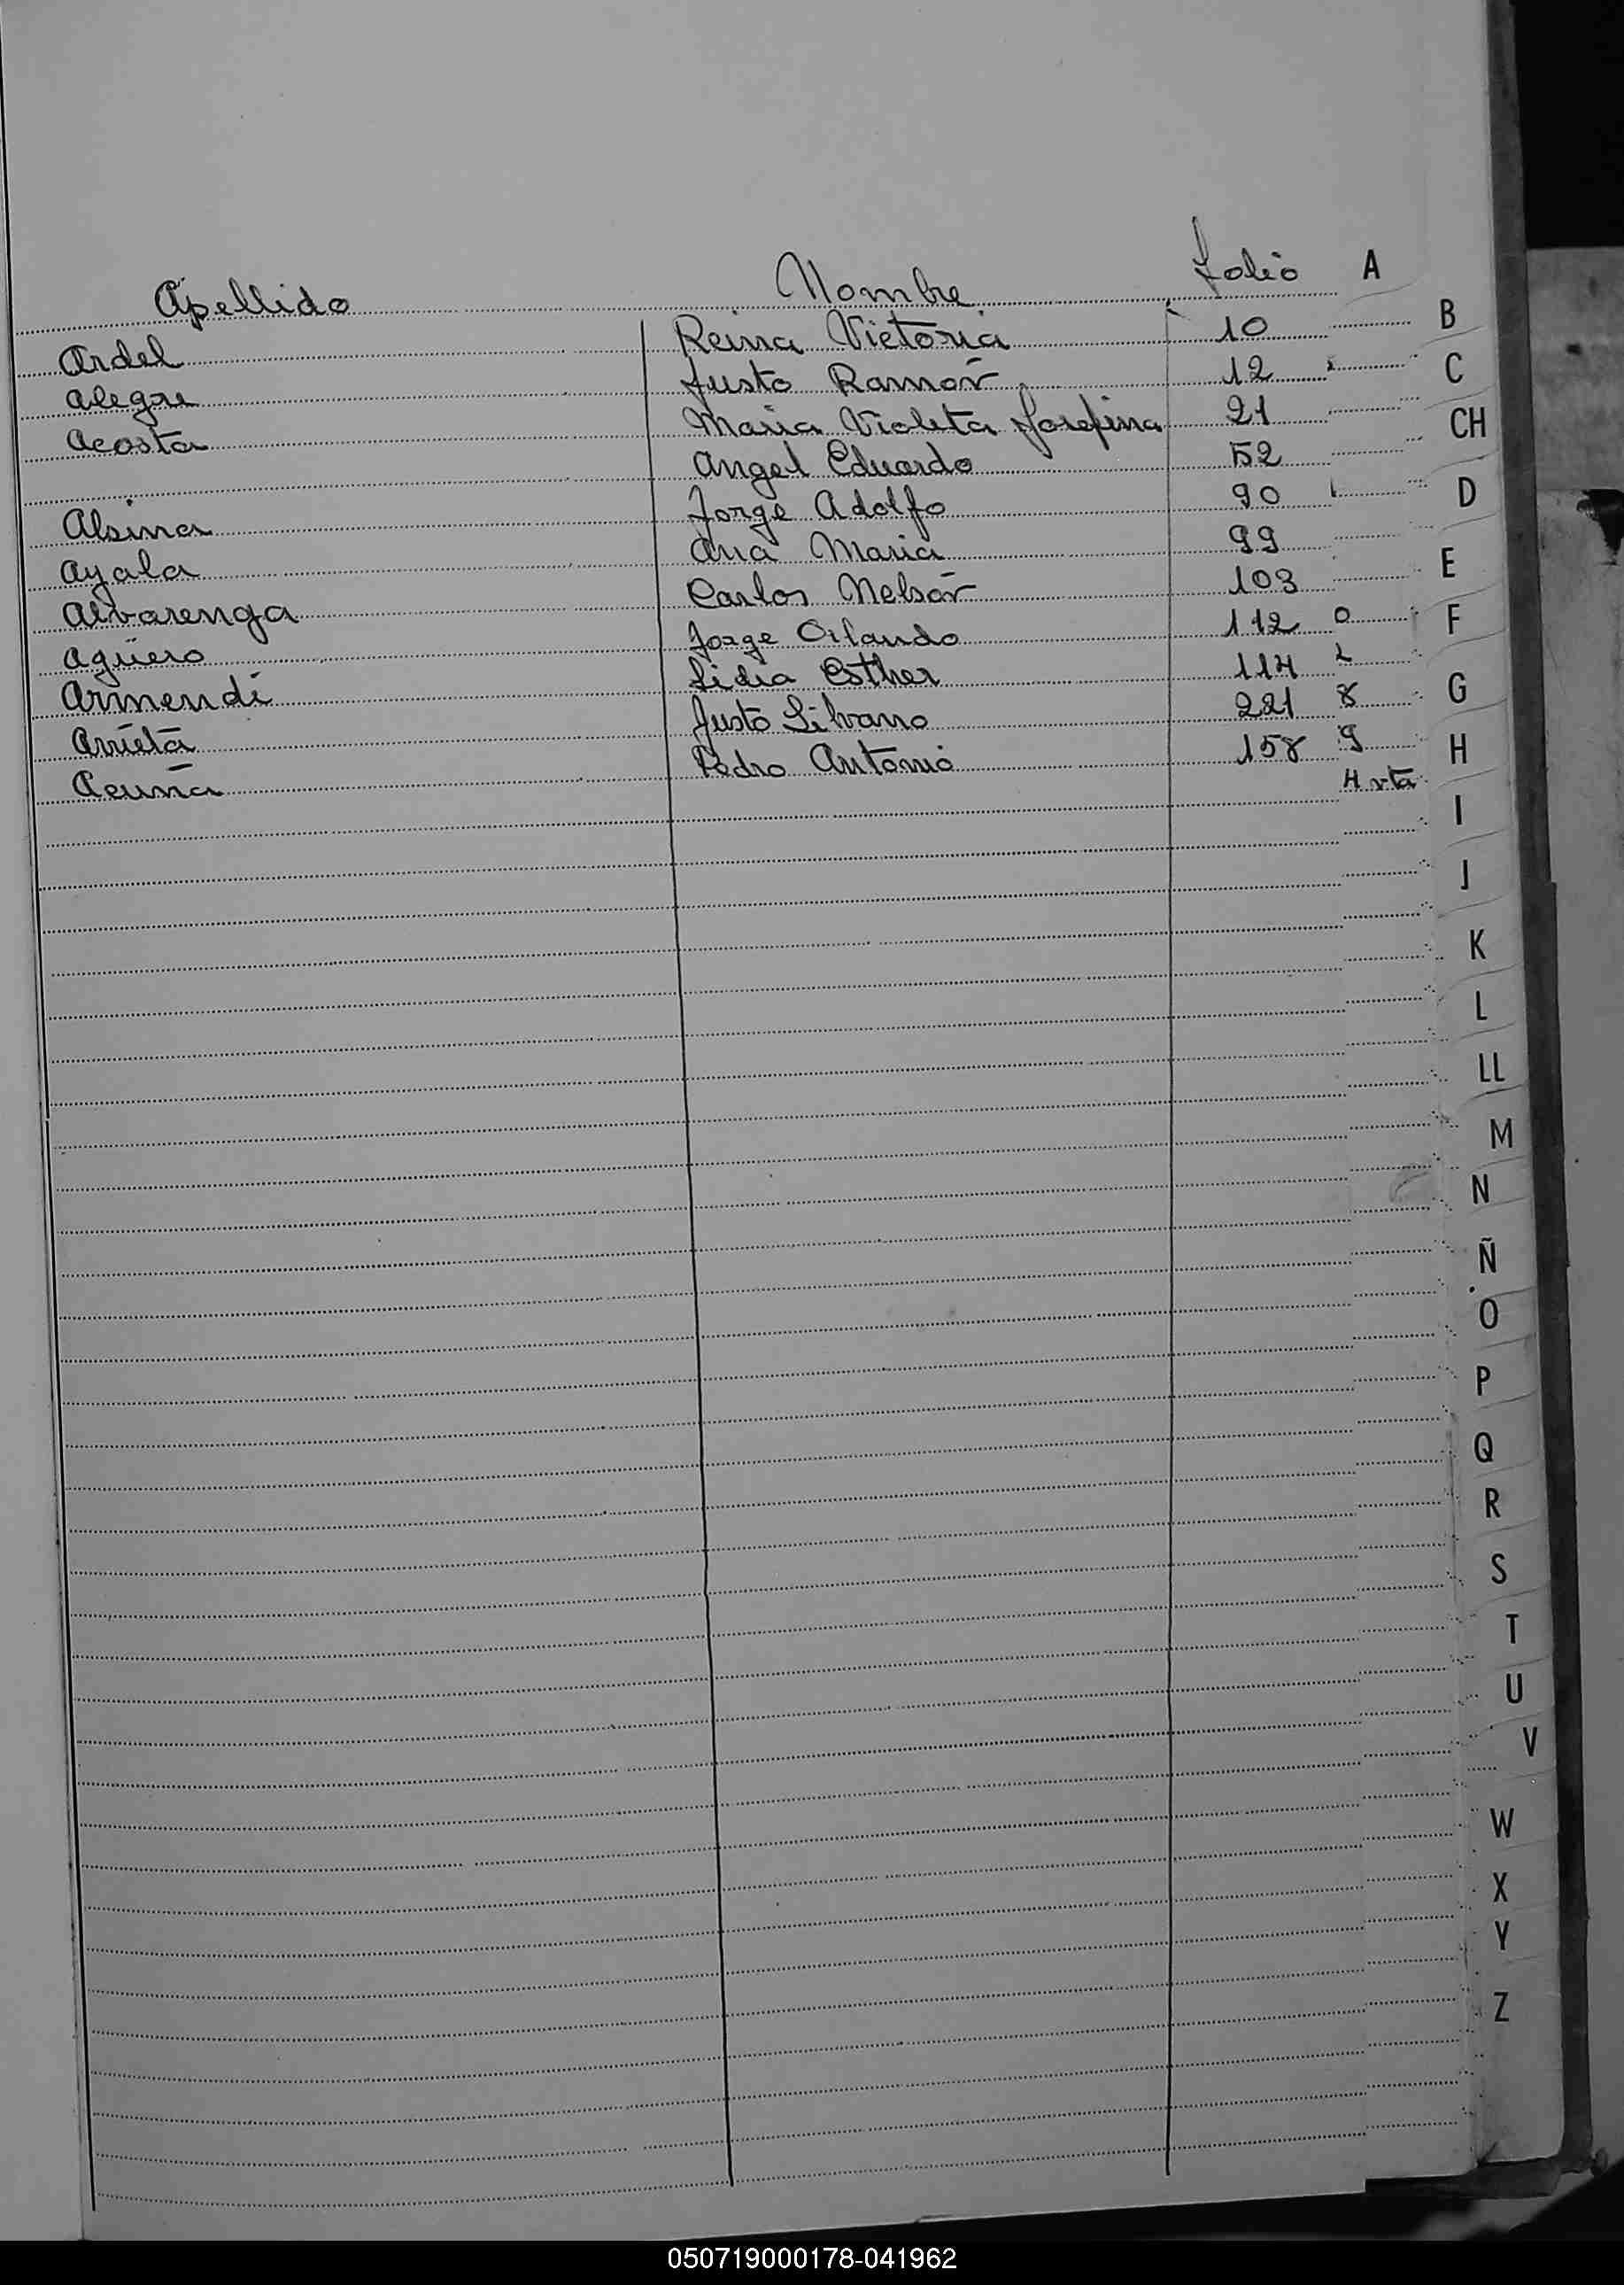 Apellido Nombre folio A
Ardel Reina Victoria 10 B
Alegre Justo Ramón 12 C
Acosta Maria Violeta Josefina 21 CH
Angel Eduardo 52
Alsina Jorge Adolfo 90 D
Ayala Ana Maria 99
Alvarenga Carlos Nelsón 103 E
Agüero Jorge Orlando 112 0 F
Armendi Lidia Esther 114 2
Arrieta Justo Silvano 221 8 G
Acuña Pedro Antonio 158 9 H
4 vta
I
J
K
L
LL
M
N
Ñ
O
P
Q
R
S
T
U
V
W
X
Y
Z
050719000178-041962